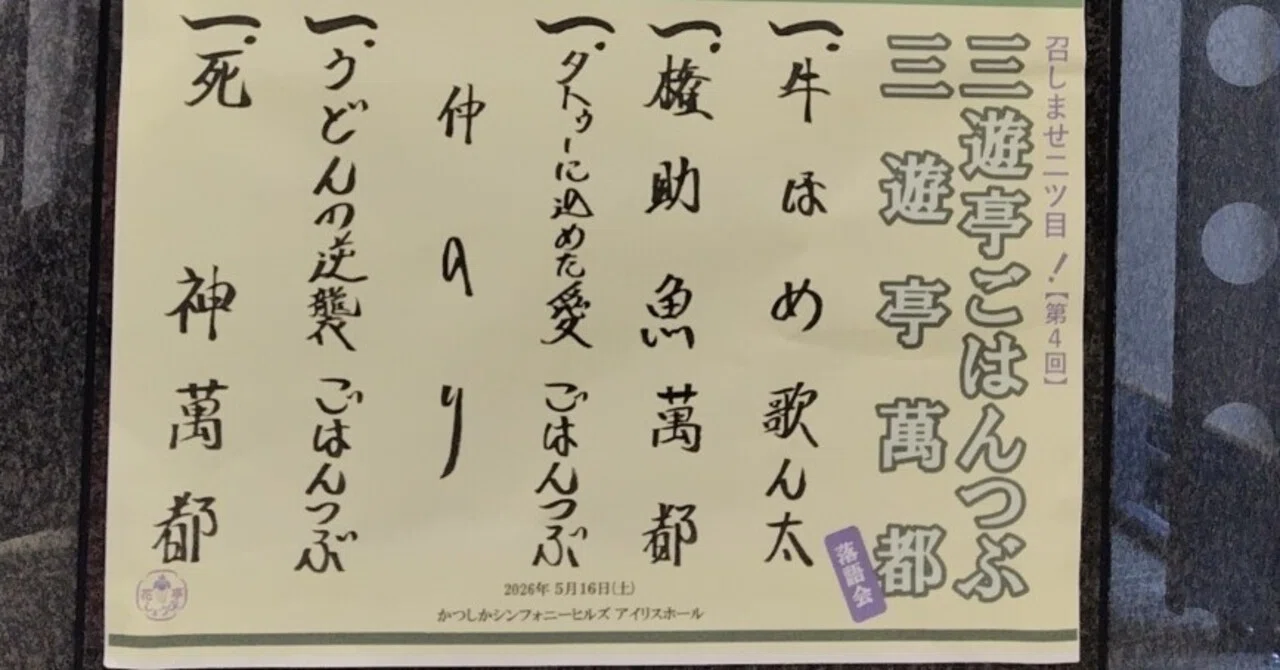 召しませ二ツ目！【第4回】
三遊亭ごはんつぶ
三遊亭萬都
落語会
一、牛ほめ 歌ん太
一、権助魚 萬都
一、タトゥーに込めた愛 ごはんつぶ
仲のり
一、うどんの逆襲 ごはんつぶ
一、死神 萬都
2026年 5月16日(土)
かつしかシンフォニーヒルズ アイリスホール